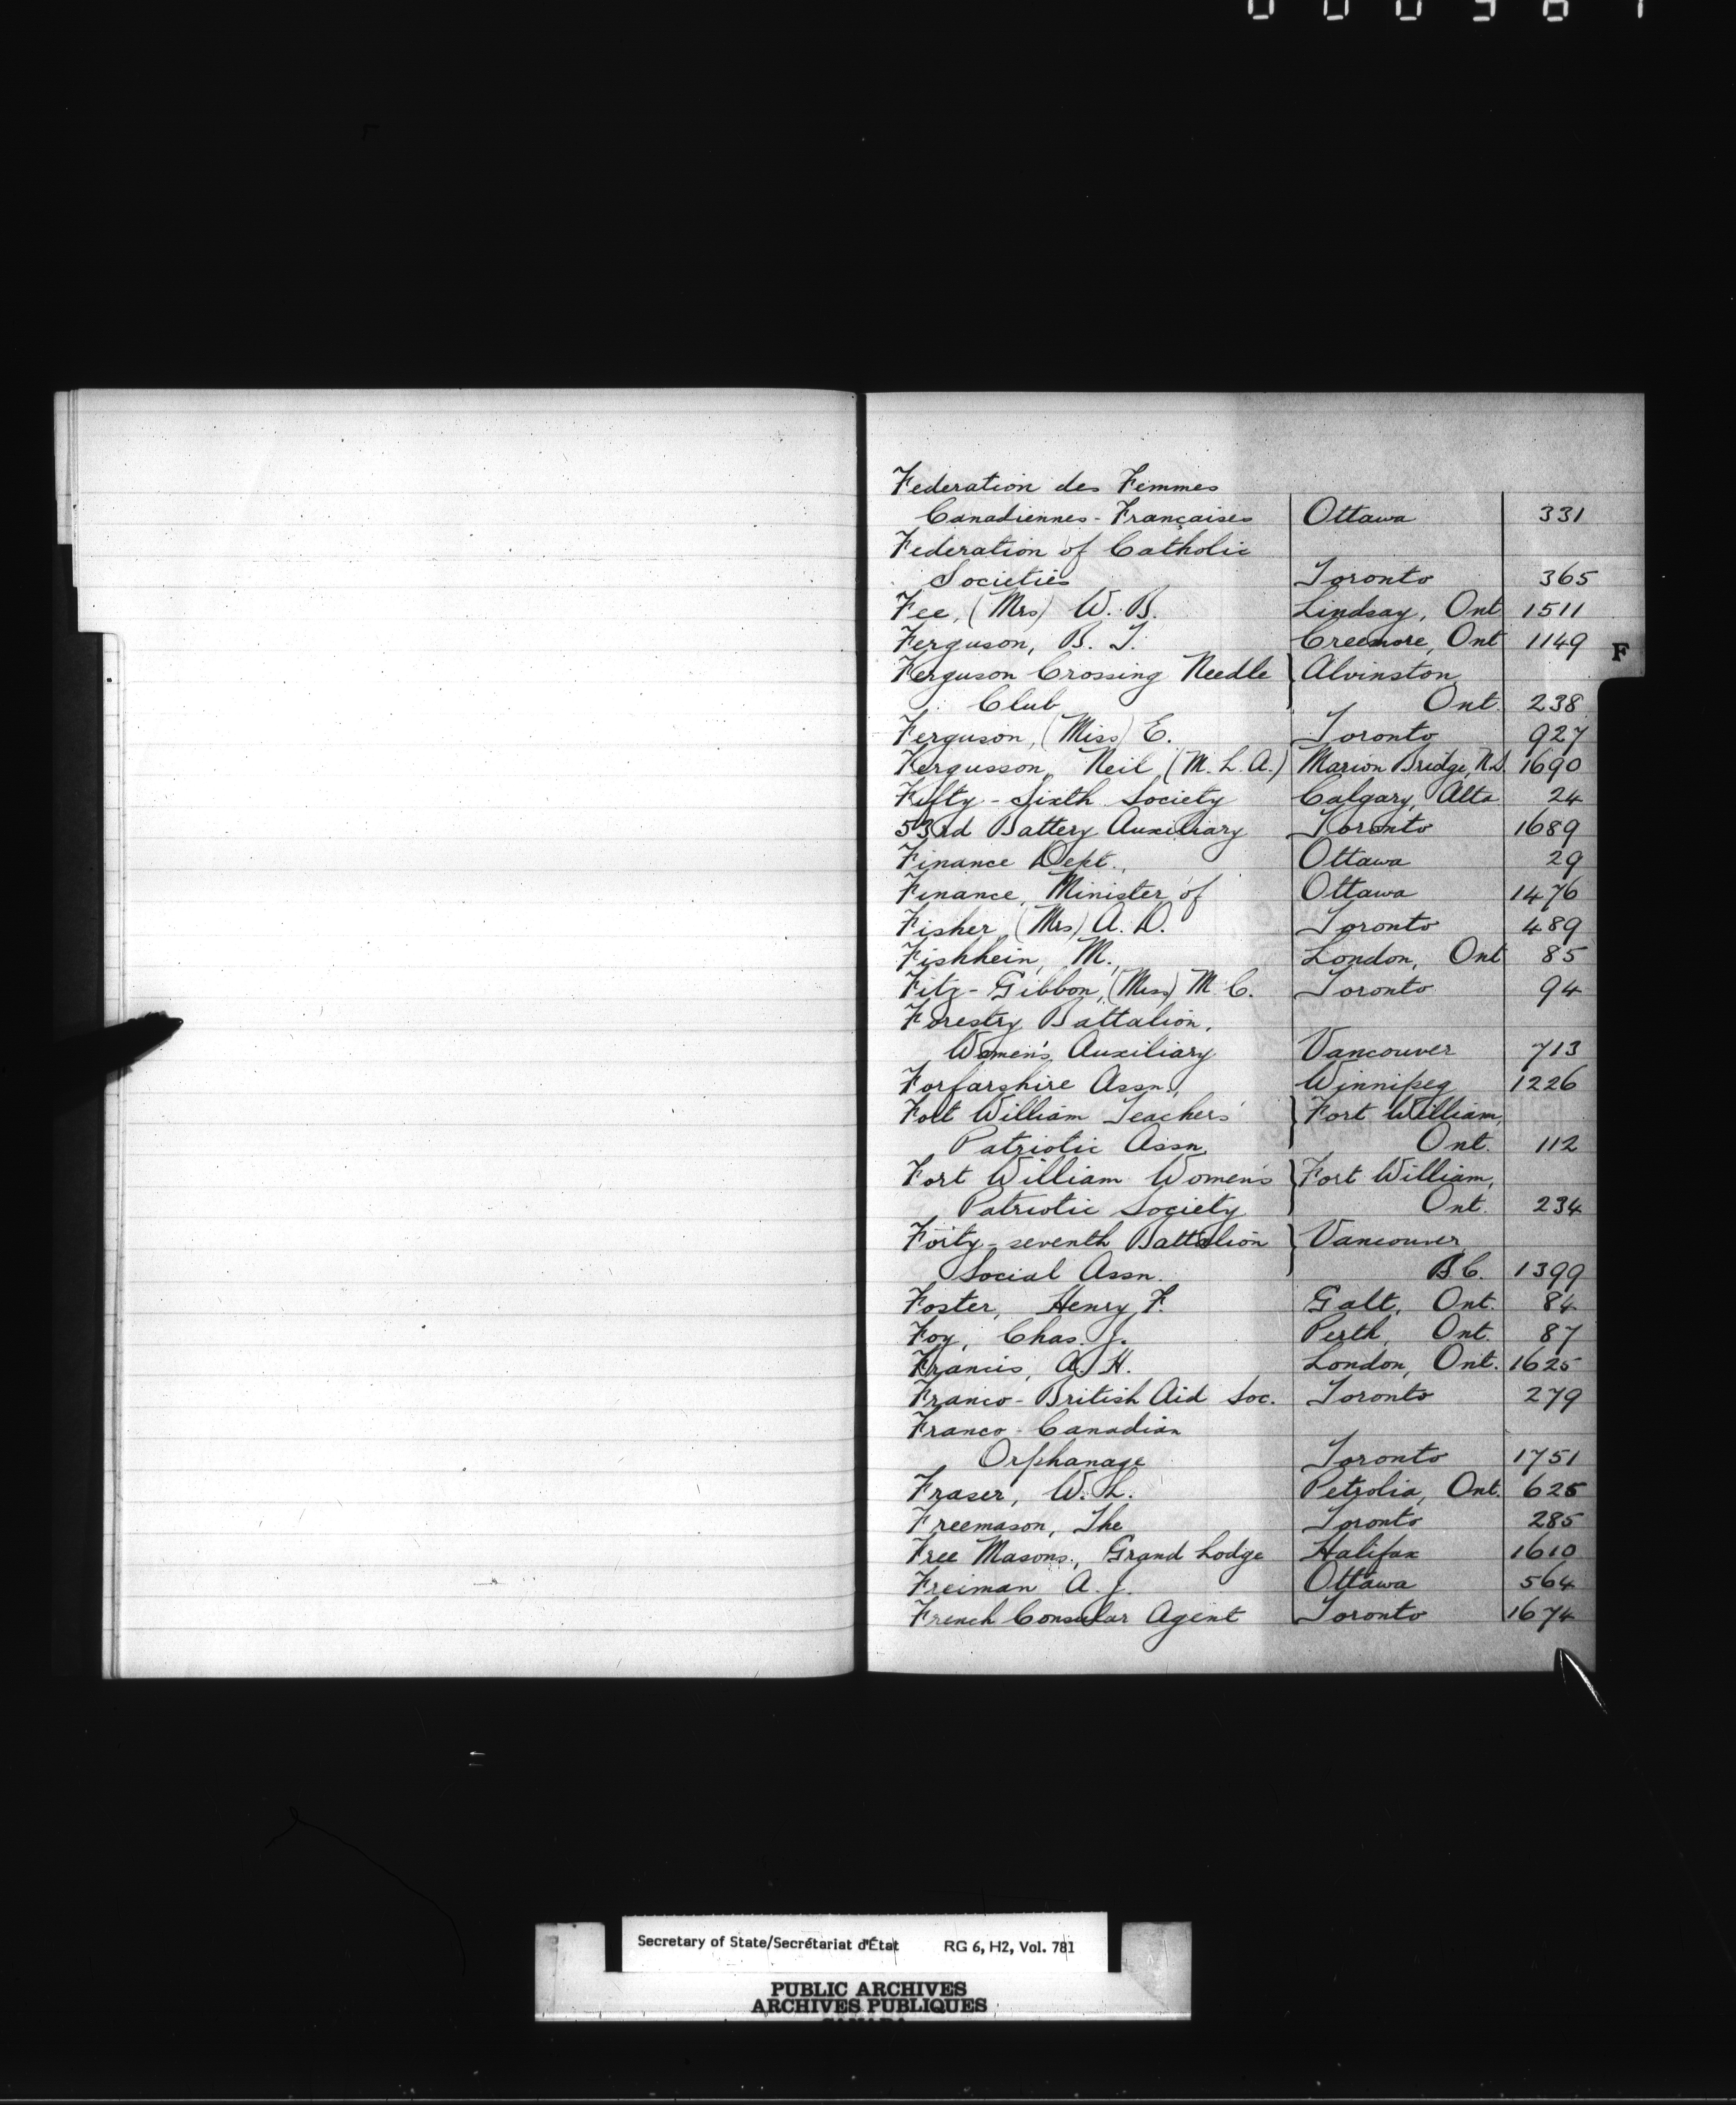 Federation des Femmes
Canadiennes-Françaises Ottawa 331
Federation of Catholic
Societies Toronto 365
Fee, (Mrs) W. B. Lindsay, Ont 1511
Ferguson, B. T. Creemore, Ont 1149
F
Ferguson Crossing Needle Alvinston,
Club Ont. 238
Ferguson, (Miss) E. Toronto 927
Fergusson, Neil (M.L.A.) Marion Bridge, N.S. 1690
Fifty-Sixth Society Calgary, Alta 24
53rd Battery Auxiliary Toronto 1689
Finance Dept., Ottawa 29
Finance, Minister of Ottawa 1476
Fisher, (Mrs) A. D. Toronto 489
Fishhein, M., London, Ont 85
Fitz-Gibbon, (Miss) M. C. Toronto 94
Forestry Battalion,
Women's Auxiliary Vancouver 713
Forfarshire Assn., Winnipeg 1226
Fort William Teachers' Fort William,
Patriotic Assn. Ont. 112
Fort William Women's Fort William,
Patriotic Society Ont. 234
Forty-seventh Battalion Vancouver
Social Assn. B.C. 1399
Foster, Henry F. Galt, Ont. 84
Foy, Chas. J. Perth, Ont. 87
Francis, A. H. London, Ont. 1625
Franco-British Aid Soc. Toronto 279
Franco-Canadian
Orphanage Toronto 1751
Fraser, W. L. Petrolia, Ont. 625
Freemason, The Toronto 285
Free Masons., Grand Lodge Halifax 1610
Freiman A. J. Ottawa 564
French Consular Agent Toronto 1674
Secretary of State/Secrétariat d'État RG 6, H2, Vol. 781
PUBLIC ARCHIVES
ARCHIVES PUBLIQUES